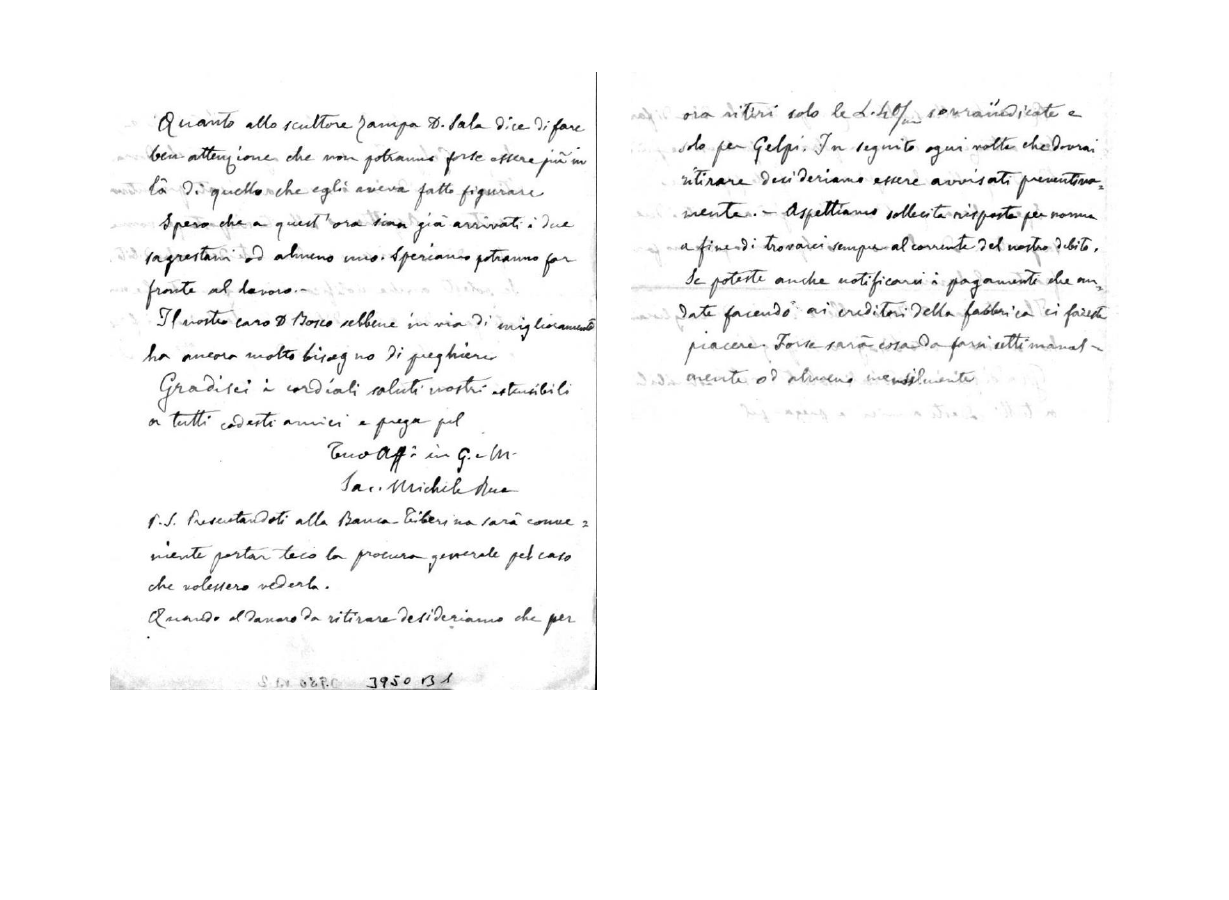 Quanto allo scultore Zampa D. Sala dice di fare
ben attenzione che non potranno forse essere più in
là di quello che egli aveva fatto figurare
Spero che a quest'ora sian già arrivati i due
sagrestani od almeno uno. Speriamo potranno far
fronte al lavoro.-
Il nostro caro D Bosco sebbene in via di miglioramento
ha ancora molto bisogno di preghiere
Gradisci i cordiali saluti nostri estensibili
a tutti codesti amici e prega pel
Tuo Aff.o in G. e M.
Sac. Michele Rua
P.S. Presentandoti alla Banca Tiberina sarà conve=
niente portar teco la procura generale pel caso
che volessero vederla.
Quando al danaro da ritirare desideriamo che per
3950 B 1
ora ritiri solo le L. 40/m sovraindicate e
solo per Gelpi. In seguito ogni volta che dovrai
ritirare desideriamo essere avvisati preventiva=
mente. - Aspettiamo sollecita risposta per norma
a fine di trovarci sempre al corrente del nostro debito.
Se poteste anche notificarci i pagamenti che an=
date facendo ai creditori della fabbrica ci fareste
piacere. Forse sarà cosa da farsi settimanal-
mente od almeno mensilmente